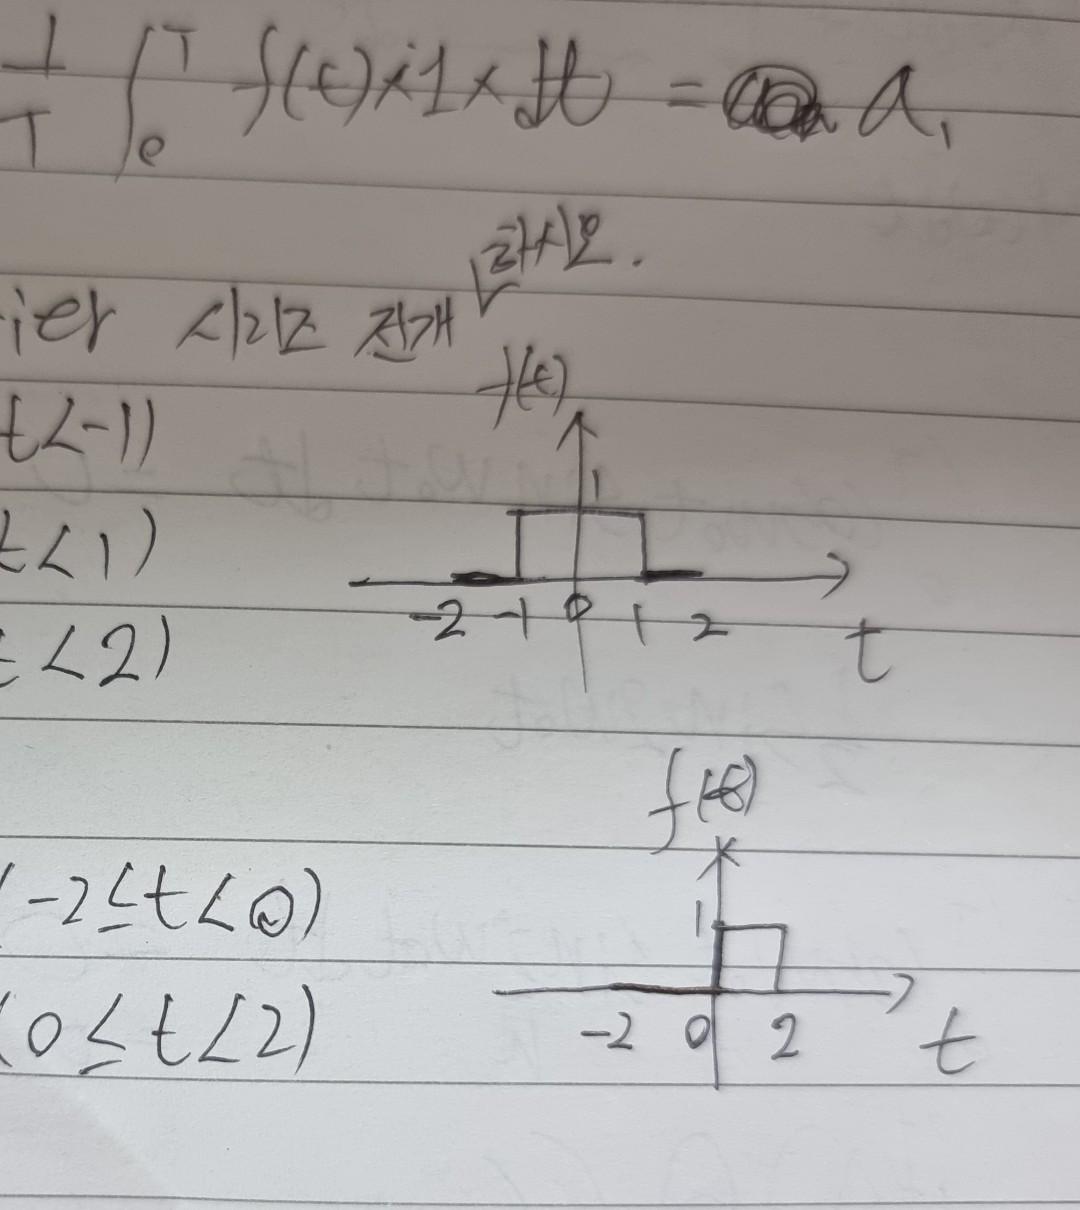 1/T ∫₀ᵀ f(t)×1×dt = a₁
하시오.
ier 시리즈 전개
f(t)
t<-1)
1
t<1)
-2 -1 0 1 2
t<2)
t
f(t)
(-2≤t<0)
1
(0≤t<2)
-2 0 2 t